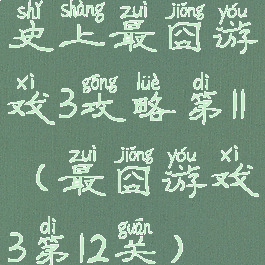 shǐ shàng zuì jiǒng yóu
史上最囧游
xì gōng lüè dì
戏3攻略第11
zuì jiǒng yóu xì
(最囧游戏
dì guān
3第12关)